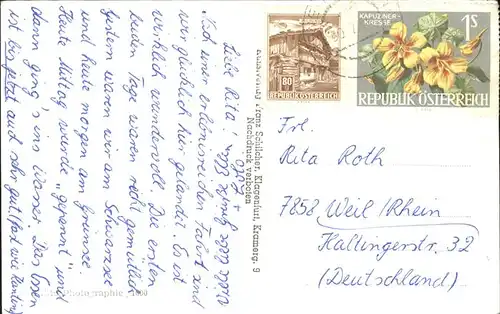 Liebe Rita!
Nach einer erlebnisreichen Fahrt sind
wir glücklich hier gelandet. Es ist
wirklich wundervoll. Die ersten
beiden Tage waren recht gemütlich
Gestern waren wir am Schwarzsee
und heute morgen am Grünsee
Heute Mittag wurde "gepennt" und
dann ging's ins Wasser. Das Essen
ist bis jetzt auch sehr gut (fast wie
Alles Gute
Franz Schilcher, Klagenfurt, Kramerg. 9
Nachdruck verboten
80
REPUBLIK ÖSTERREICH
KAPUZINER-
KRESSE
1S
REPUBLIK ÖSTERREICH
Frl.
Rita Roth
7858 Weil/Rhein
Haltingerstr. 32
(Deutschland)